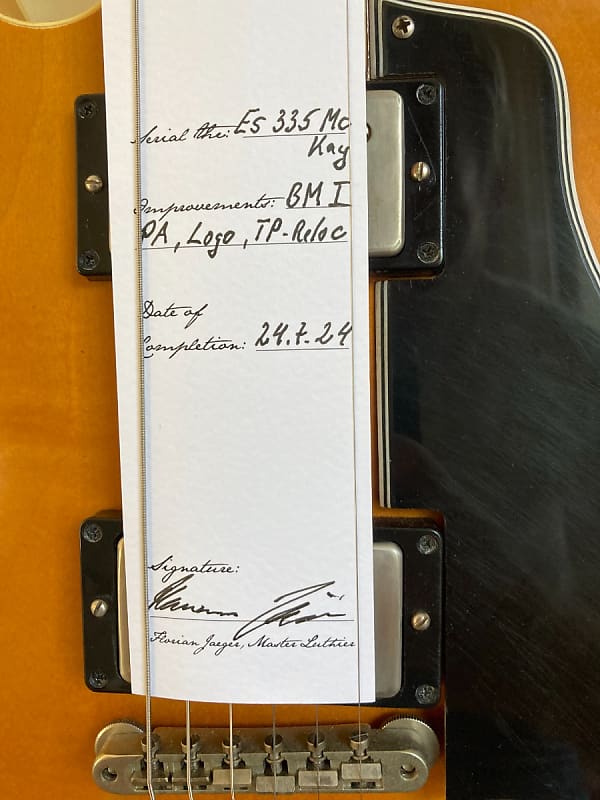 Serial the: Es 335 Mc
Kay
Improvements: BM I
PA, Logo, TP-Reloc
Date of
Completion: 24.7.24
Signature:
Florian Jaeger, Master Luthier